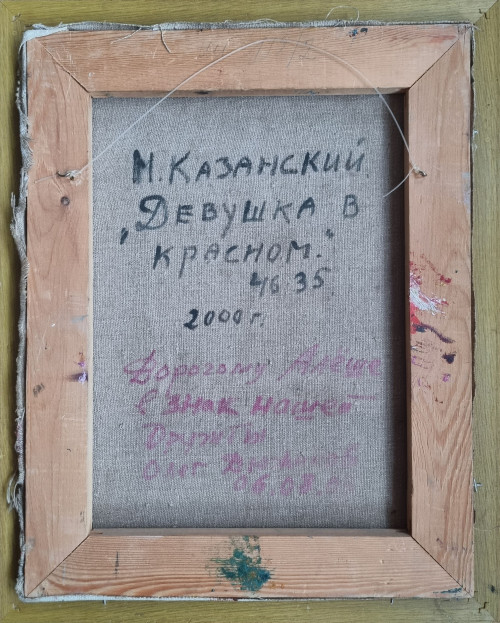 М. КАЗАНСКИЙ.
„ДЕВУШКА В
КРАСНОМ."
46 35
2000 г.
Дорогому Алеше
в знак нашей
Дружбы
Олег
06.08.